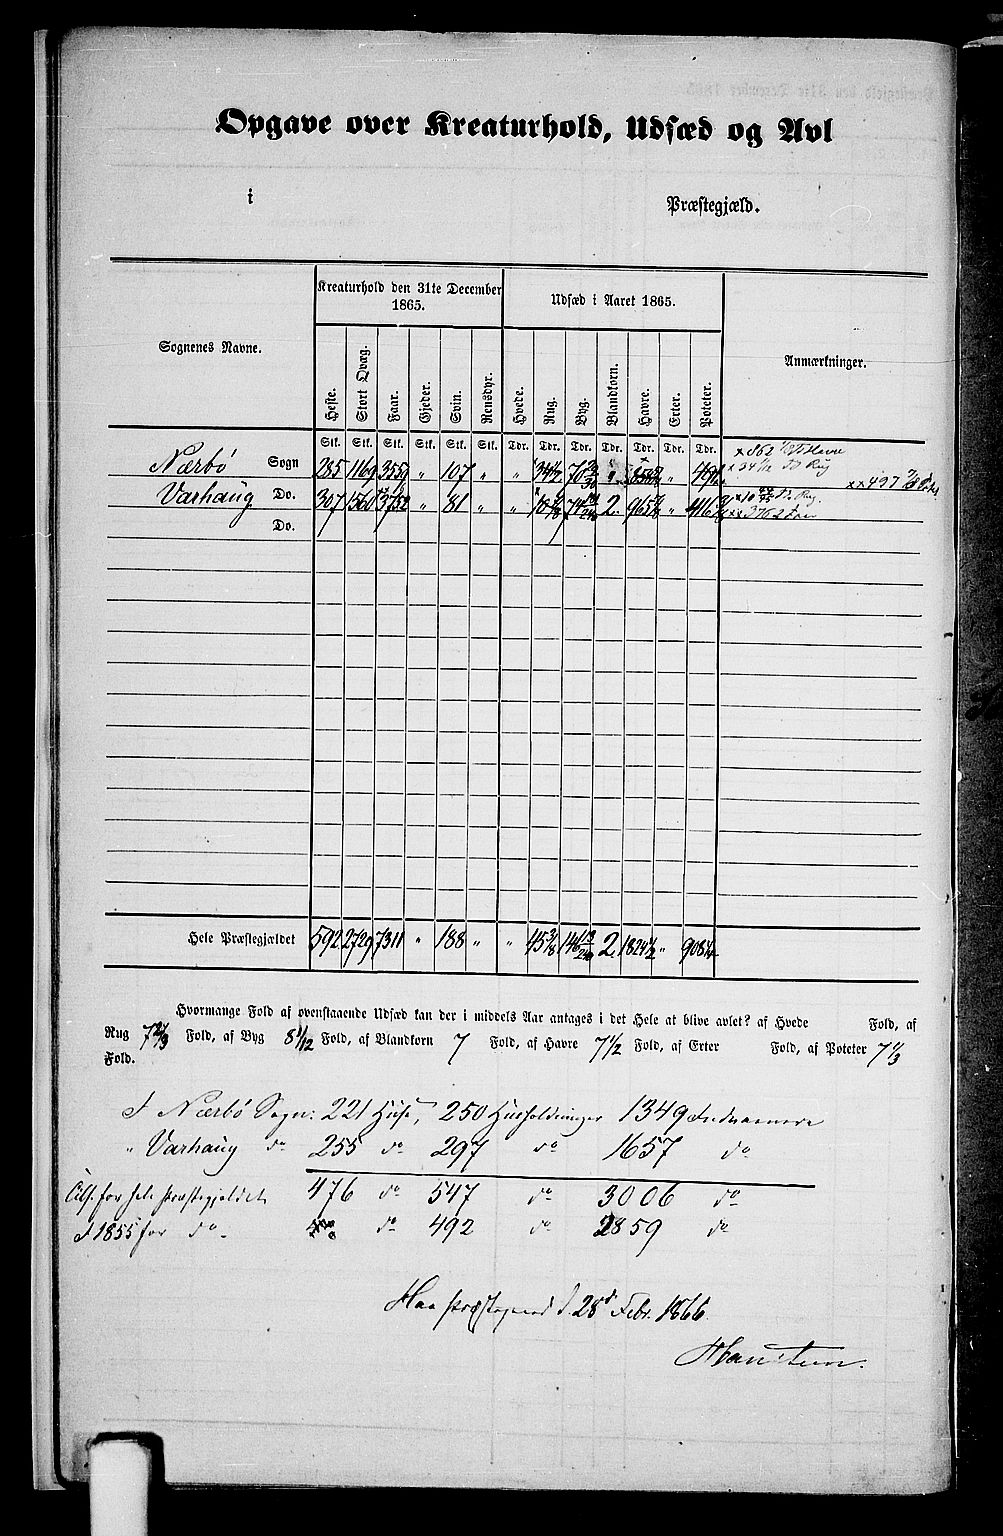 Opgave over Kreaturhold, Udsæd og Avl
i Præstegjæld.
Sognenes Navne. Kreaturhold den 31te December 1865. Udsæd i Aaret 1865. Anmærkninger.
Heste. Stort Qvæg. Faar. Gjeder. Svin. Rensdyr. Hvede. Rug. Byg. Blandkorn. Havre. Erter. Poteter.
Stk. Stk. Stk. Stk. Stk. Stk. Tdr. Tdr. Tdr. Tdr. Tdr. Tdr. Tdr.
Nærbö Sogn 285 1169 3559 " 107 " "
× 34 1/2 Rug
×× 497
Varhaug Do. 307 1560 3752 " 81 " " 2. 965 " 416
×× 3762
Do.
Hele Præstegjældet 592 2729 7311 " 188 " " 45 3/8 146 2. 1824 1/2 " 908
Hvormange Fold af ovenstaaende Udsæd kan der i middels Aar antages i det Hele at blive avlet? af Hvede Fold, af
Rug 7 Fold, af Byg 8 1/12 Fold, af Blandkorn 7 Fold, af Havre 7 1/2 Fold, af Erter Fold, af Poteter 7 1/3
Fold.
I Nærbö Sogn: 221 Huse, 250 Husholdninger 1349 Indvaanere
" Varhaug do 255 do 297 do 1657 do
for hele Præstegjeldet 476 do 547 do 3006 do
I 1855 for do do 492 do 2859 do
Haa Præstegaard d. 28d Febr. 1866.